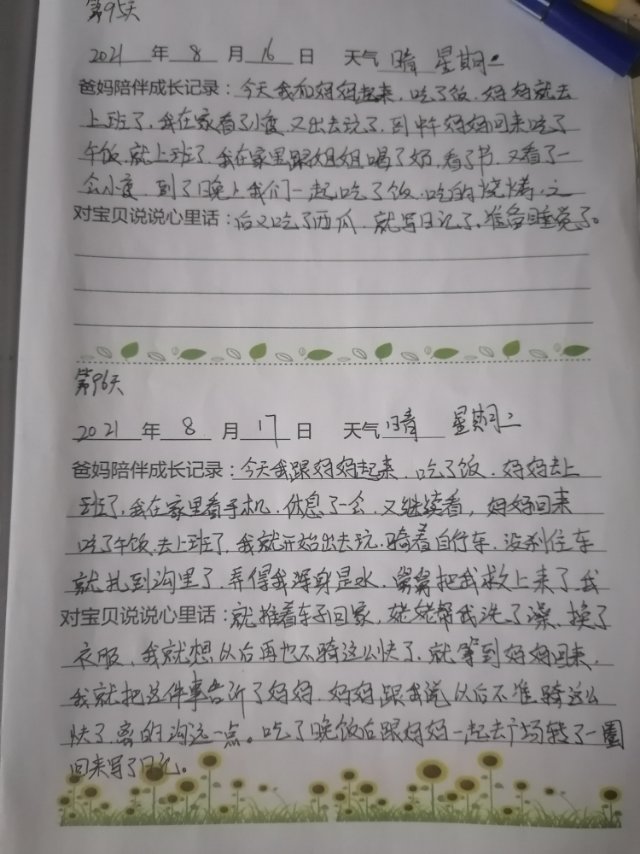 第95天
2021 年 8 月 16 日 天气 晴 星期二
爸妈陪伴成长记录：今天我和妈妈起来，吃了饭，妈妈就去
上班了，我在家看了小度，又出去玩了，到中午妈妈回来吃了
午饭，就上班了，我在家里跟姐姐喝了奶，看了书，又看了一
会小度，到了晚上我们一起吃了饭，吃的烧烤，之
对宝贝说说心里话：后又吃了西瓜，就写日记了。准备睡觉了。
第96天
2021 年 8 月 17 日 天气 晴 星期二
爸妈陪伴成长记录：今天我跟妈妈起来，吃了饭，妈妈去上
班了，我在家里看手机，休息了一会，又继续看，妈妈回来
吃了午饭，去上班了，我就开始出去玩，骑着自行车，没刹住车
就扎到沟里了，弄得我浑身是水，舅舅把我救上来了，我
对宝贝说说心里话：就推着车子回家，姥姥帮我洗了澡，换了
衣服，我就想以后再也不骑这么快了，就等到妈妈回来，
我就把这件事告诉了妈妈，妈妈跟我说以后不准骑这么
快了，离的沟远一点。吃了晚饭后跟妈妈一起去广场转了一圈
回来写了日记。